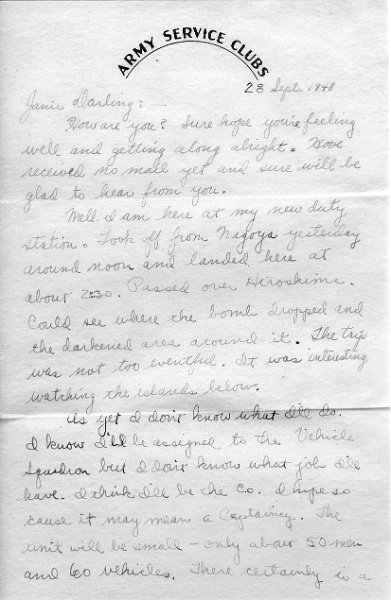 ARMY SERVICE CLUBS
28 Sept. 1948
Janie Darling:
How are you? Sure hope you're feeling
well and getting along alright. Have
received no mail yet and sure will be
glad to hear from you.
Well I am here at my new duty
station. Took off from Nagoya yesterday
around noon and landed here at
about 2:30. Passed over Hiroshima.
Could see where the bomb dropped and
the darkened area around it. The trip
was not too eventful. It was interesting
watching the islands below.
As yet I don't know what I'll do.
I know I'll be assigned to the Vehicle
Squadron but I don't know what job I'll
have. I think I'll be the C.O. I hope so
cause it may mean a Captaincy. The
unit will be small - only about 50 men
and 60 vehicles. There certainly is a